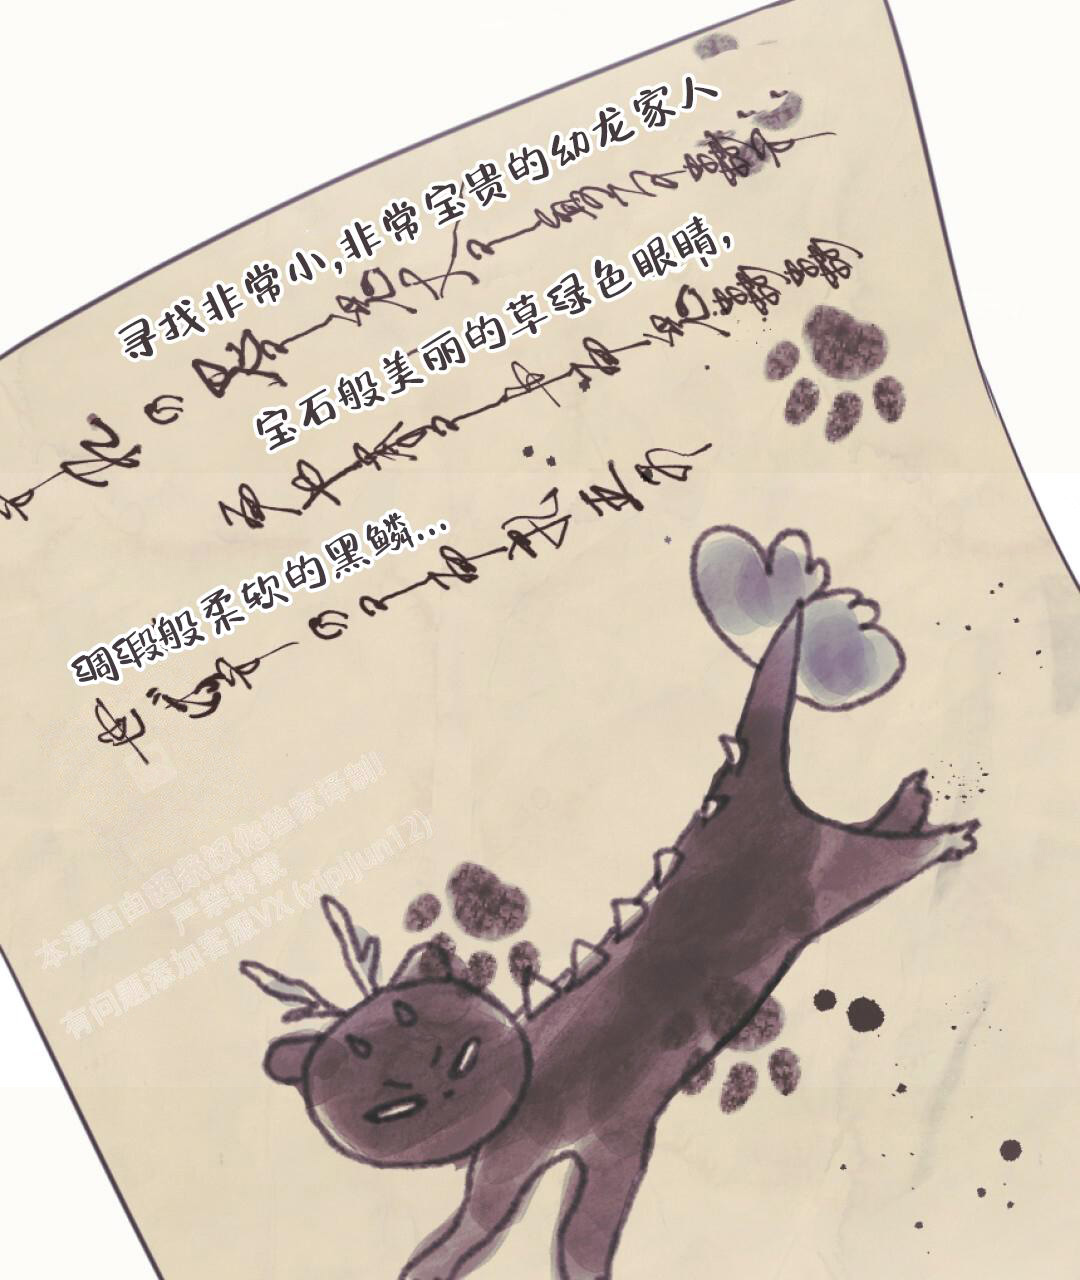 寻找非常小,非常宝贵的幼龙家人
宝石般美丽的草绿色眼睛,
绸缎般柔软的黑鳞...
本漫画由超杀汉化独家译制!!
严禁转载
有问题添加客服VX(xipijun12)